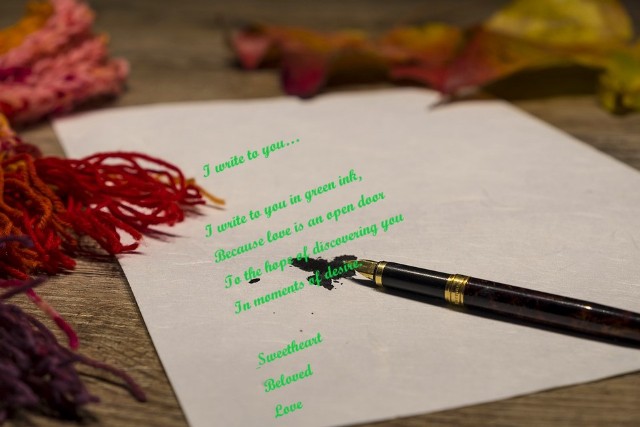 I write to you...
I write to you in green ink,
Because love is an open door
To the hope of discovering you
In moments of desire.
Sweetheart
Beloved
Love